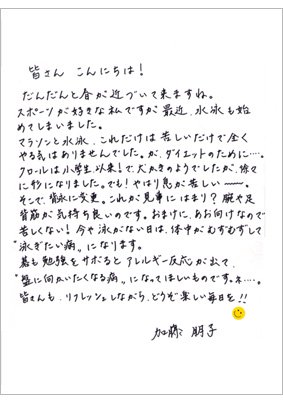 皆さん こんにちは!
だんだんと春が近づいて来ますね。
スポーツが好きな私ですが最近、水泳も始
めてしまいました。
マラソンと水泳、これだけは苦しいだけで全く
やる気はありませんでした。が、ダイエットのために…。
クロールは小学生以来!で犬かきのようでしたが、徐々
に形になりました。でも!やはり息が苦しい〜〜。
そこで、背泳に変更。これが見事にはまり?腕や足
背筋が気持ち良いのです。おまけに、あお向けなので
苦しくない!今や泳がない日は、体中がむずむずして
"泳ぎたい病"になります。
碁も勉強をサボるとアレルギー反応が出て、
"盤に向かいたくなる病"になってほしいものです。ネ…。
皆さんも、リフレッシュしながら、どうぞ楽しい毎日を!!
加藤 朋子